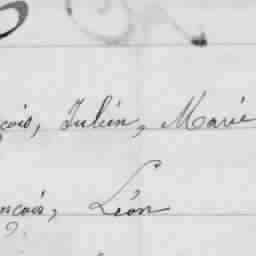 çois, Julien, Marie
ncois, Léon